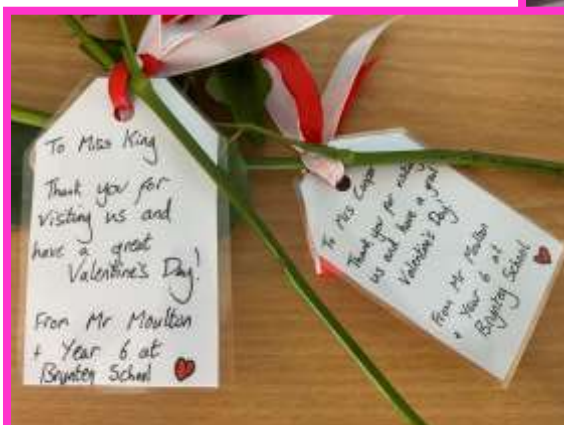 To Miss King
Thank you for
visiting us and
have a great
Valentine's Day!
From Mr Moulton
+ Year 6 at
School
To Mrs
Thank you for
us and have a great
Valentine's Day!
From Mr Moulton
+ Year 6 at
School